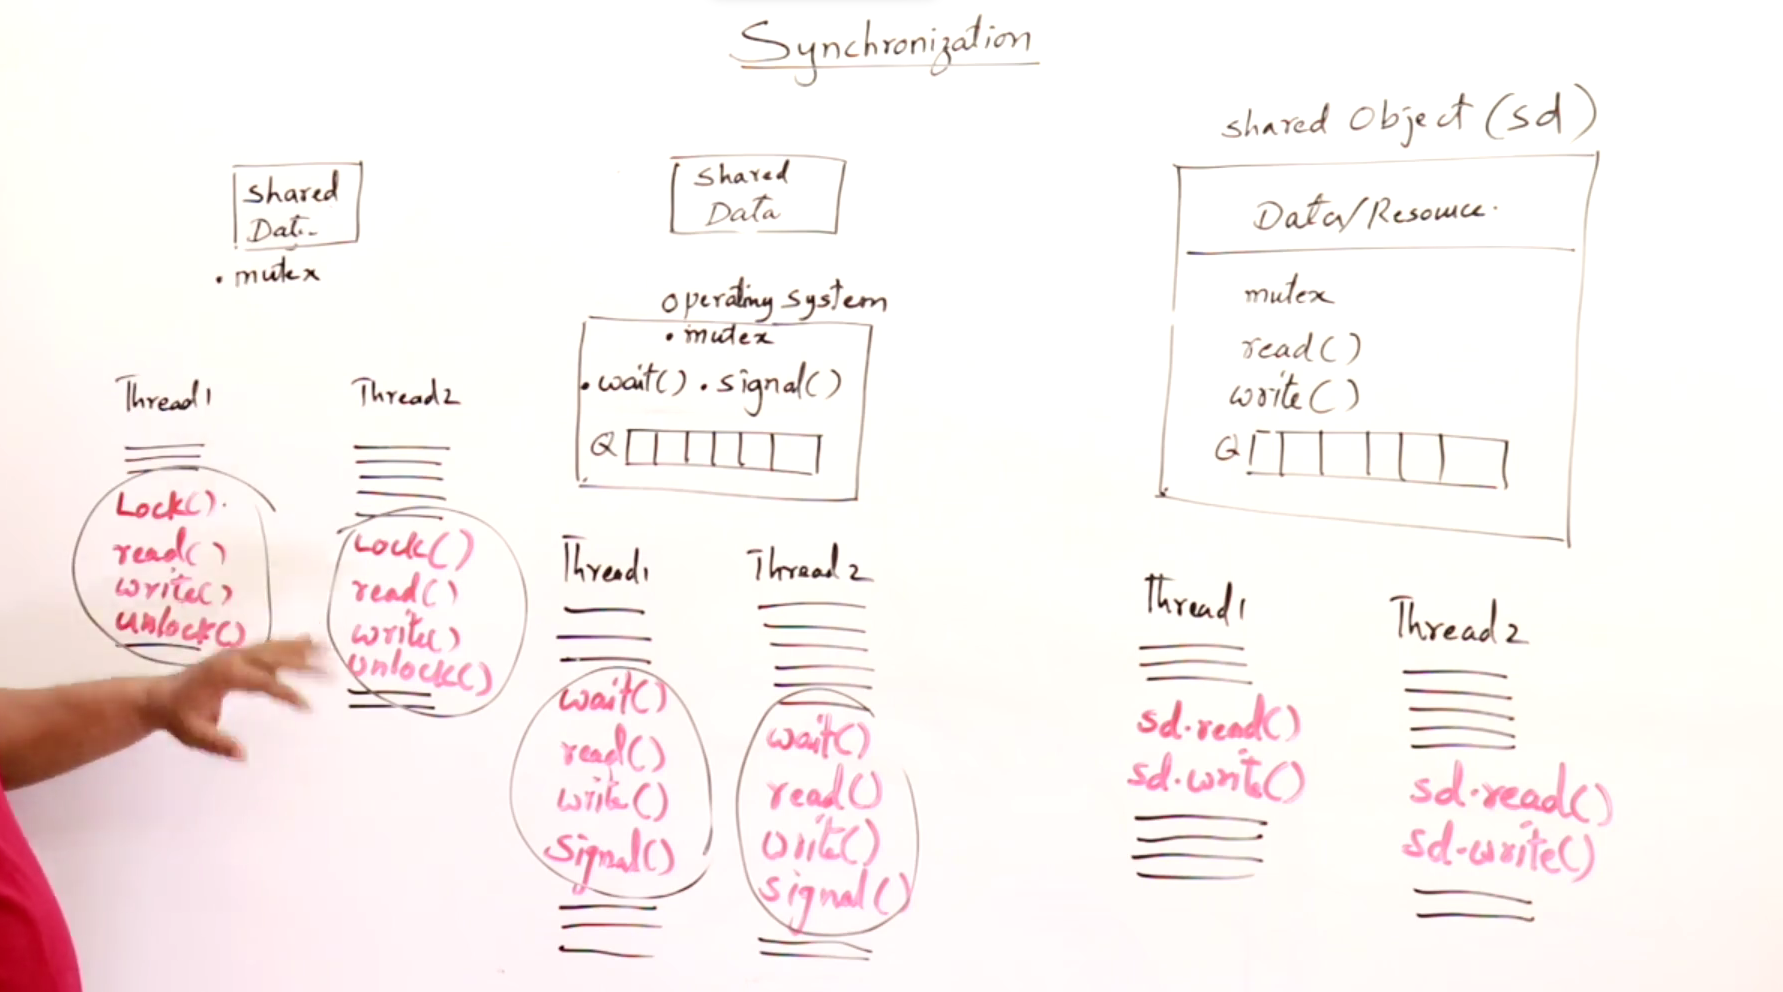 Synchronization
Shared
Dat-
• mutex
Thread1
Lock().
read()
write()
unlock()
Thread2
Lock()
read()
write()
unlock()
Shared
Data
Operating System
• mutex
• wait() • signal()
Q
Thread1
wait()
read()
write()
Signal()
Thread2
wait()
read()
write()
signal()
Shared Object (sd)
Data/Resource.
mutex
read()
write()
Q
Thread1
sd.read()
sd.write()
Thread2
sd.read()
sd.write()